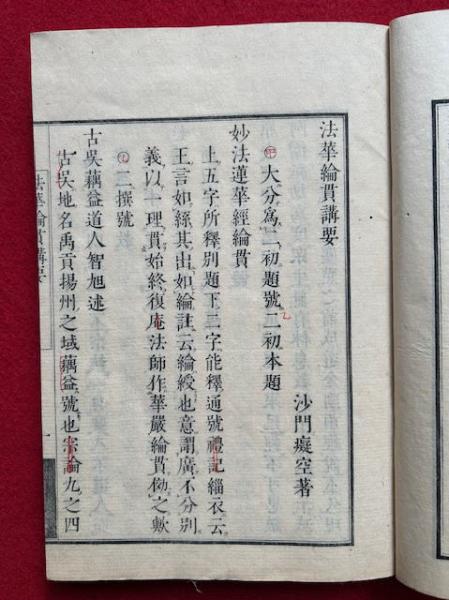 法華綸貫講要
沙門癡空著
㊙大分爲二初題號二初本題
妙法蓮華經綸貫
上五字所釋別題下二字能釋通號禮記緇衣云
王言如絲其出如綸註云綸綬也意謂廣不分別
義以一理貫始終復庵法師作華嚴綸貫倣之歟
二撰號
古吳藕益道人智旭述
古吳地名禹貢揚州之域藕益號也宗論九之四
法華綸貫講要
一